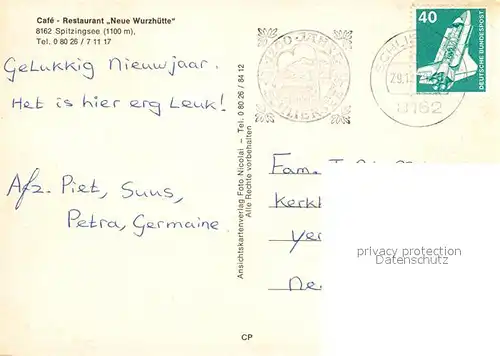 Café - Restaurant „Neue Wurzhütte"
8162 Spitzingsee (1100 m),
Tel. 0 80 26 / 7 11 17
GeLukkig Nieuwjaar.
Het is hier erg Leuk!
Afz. Piet, Suus,
Petra, Germaine
Ansichtskartenverlag Foto Nicolai – Tel. 0 80 26 / 84 12
Alle Rechte vorbehalten
CP
40
DEUTSCHE BUNDESPOST
8162
Fam.
privacy protection
Datenschutz